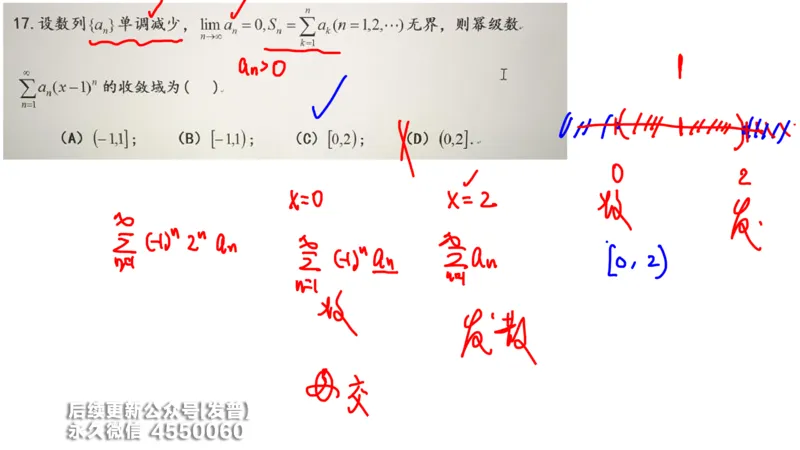 17. 设数列{aₙ}单调减少，lim_{n→∞} aₙ = 0, Sₙ = ∑_{k=1}^{n} aₖ (n = 1,2,⋯) 无界，则幂级数
aₙ>0
∑_{n=1}^{∞} aₙ(x−1)ⁿ 的收敛域为(   ).
(A) (−1,1]; (B) [−1,1); (C) [0,2); (D) (0,2].
1
0 2
收 发.
[0, 2)
x=0 x=2
∑_{n=1}^{∞} (-1)ⁿ 2ⁿ aₙ
∑_{n=1}^{∞} (-1)ⁿ aₙ ∑_{n=1}^{∞} aₙ
收 发散
交
后续更新公众号(发普)
永久微信 4550060